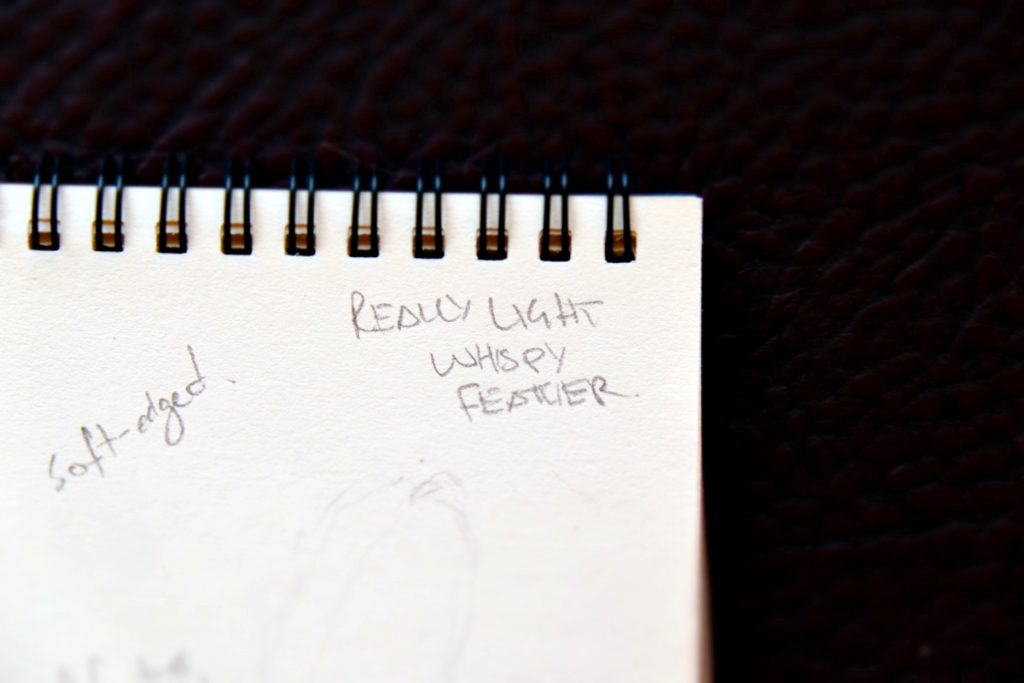 REALLY LIGHT
WHISPY
FEATHER.
soft-edged.